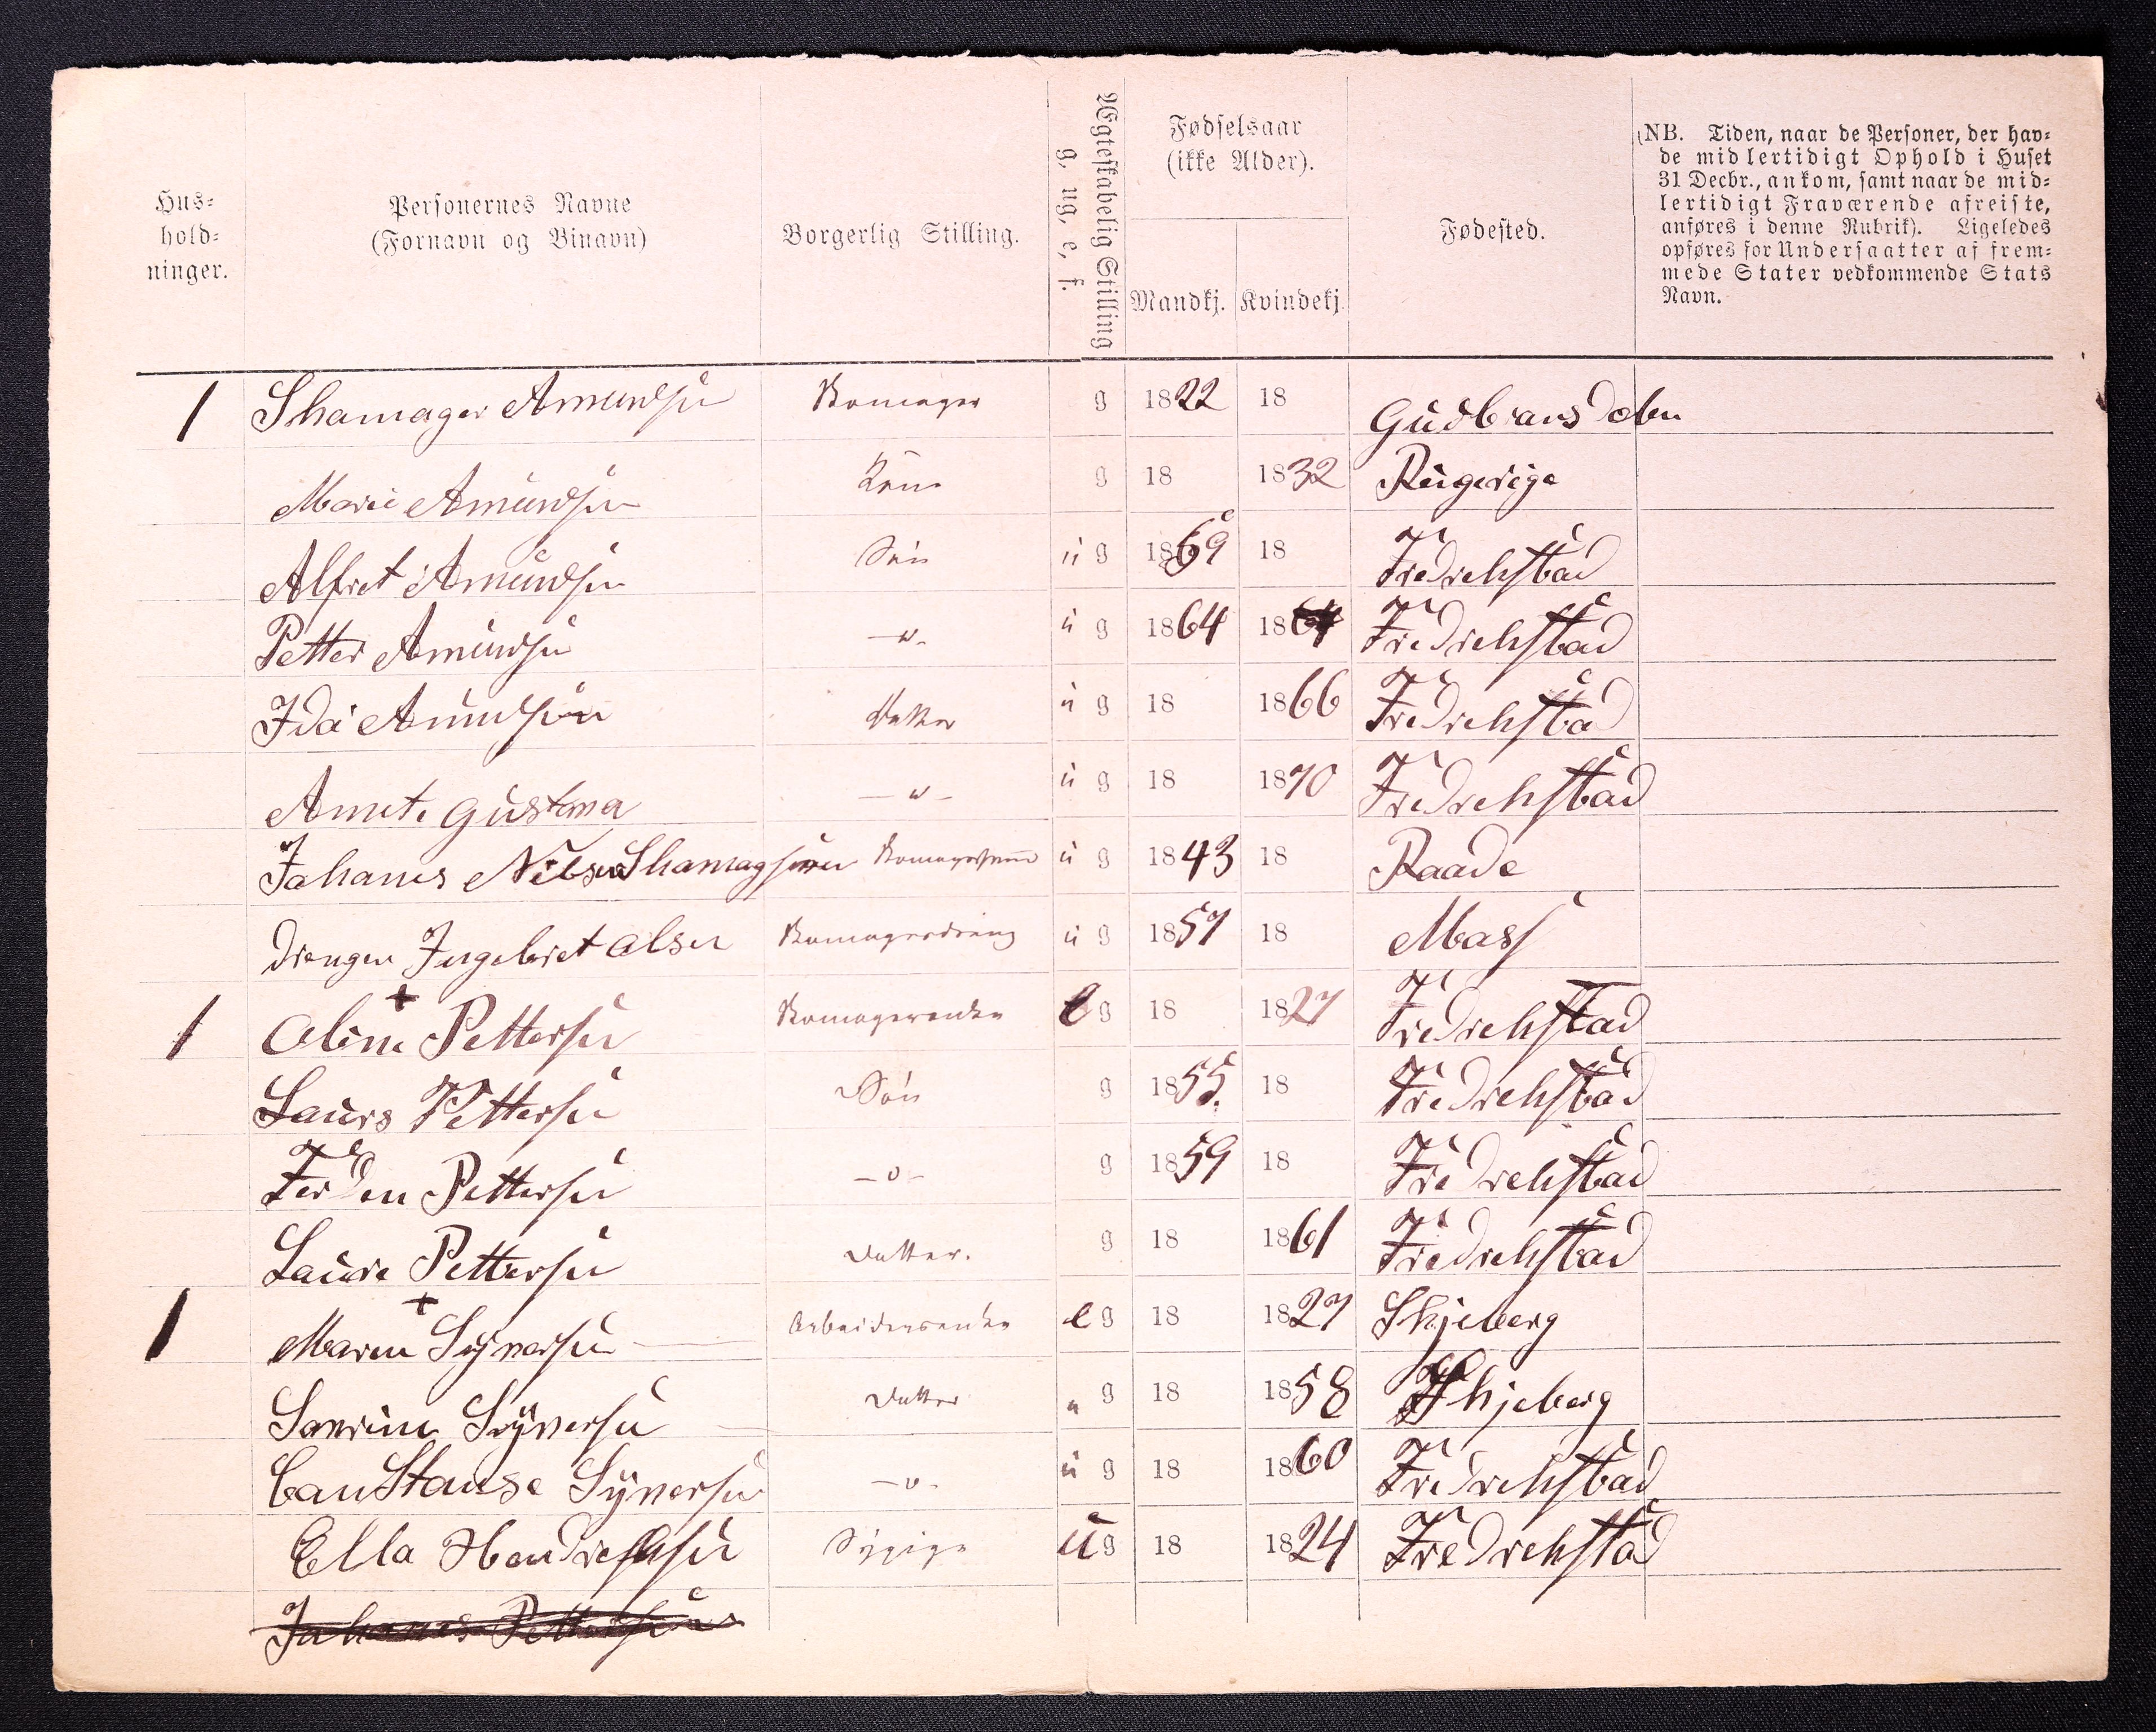 Hus-
hold-
ninger.
Personernes Navne
(Fornavn og Binavn)
Borgerlig Stilling.
Ægteskabelig Stilling
g, ug, e, f.
Fødselsaar
(ikke Alder).
Mandkj. Kvindekj.
Fødested.
(NB. Tiden, naar de Personer, der hav-
de midlertidigt Ophold i Huset
31 Decbr., ankom, samt naar de mid-
lertidigt Fraværende afreiste,
anføres i denne Rubrik). Ligeledes
opføres for Undersaatter af frem-
mede Stater vedkommende Stats
Navn.
1 Skamager Amundsen g 1822 18 Gudbransdalen
Marie Amundsen Kone g 18 1832 Ringerige
Alfret Amundsen Søn u g 1869 18 Fredrekstad
Petter Amundsen u g 1864 18 Fredrekstad
Ida Amundsen Datter u g 18 1866 Fredrekstad
Gustava u g 18 1870 Fredrekstad
Johanes Nilsen u g 1843 18 Raade
drengen Ingebret Olsen u g 1857 18 Moss
1 Oline Pettersen e g 18 1827 Fredrekstad
Laurs Pettersen Søn g 1855. 18 Fredrekstad
Pettersen g 1859 18 Fredrekstad
Laura Pettersen Datter. g 18 1861 Fredrekstad
1 Maren Syversen Arbeiderenke e g 18 1827 Skjeberg
Syversen Datter u g 18 1858 Skjeberg
Constanse Syversen u g 18 1860 Fredrekstad
Ella Hendreksen u g 18 1824 Fredrekstad
Johanes Pettersen